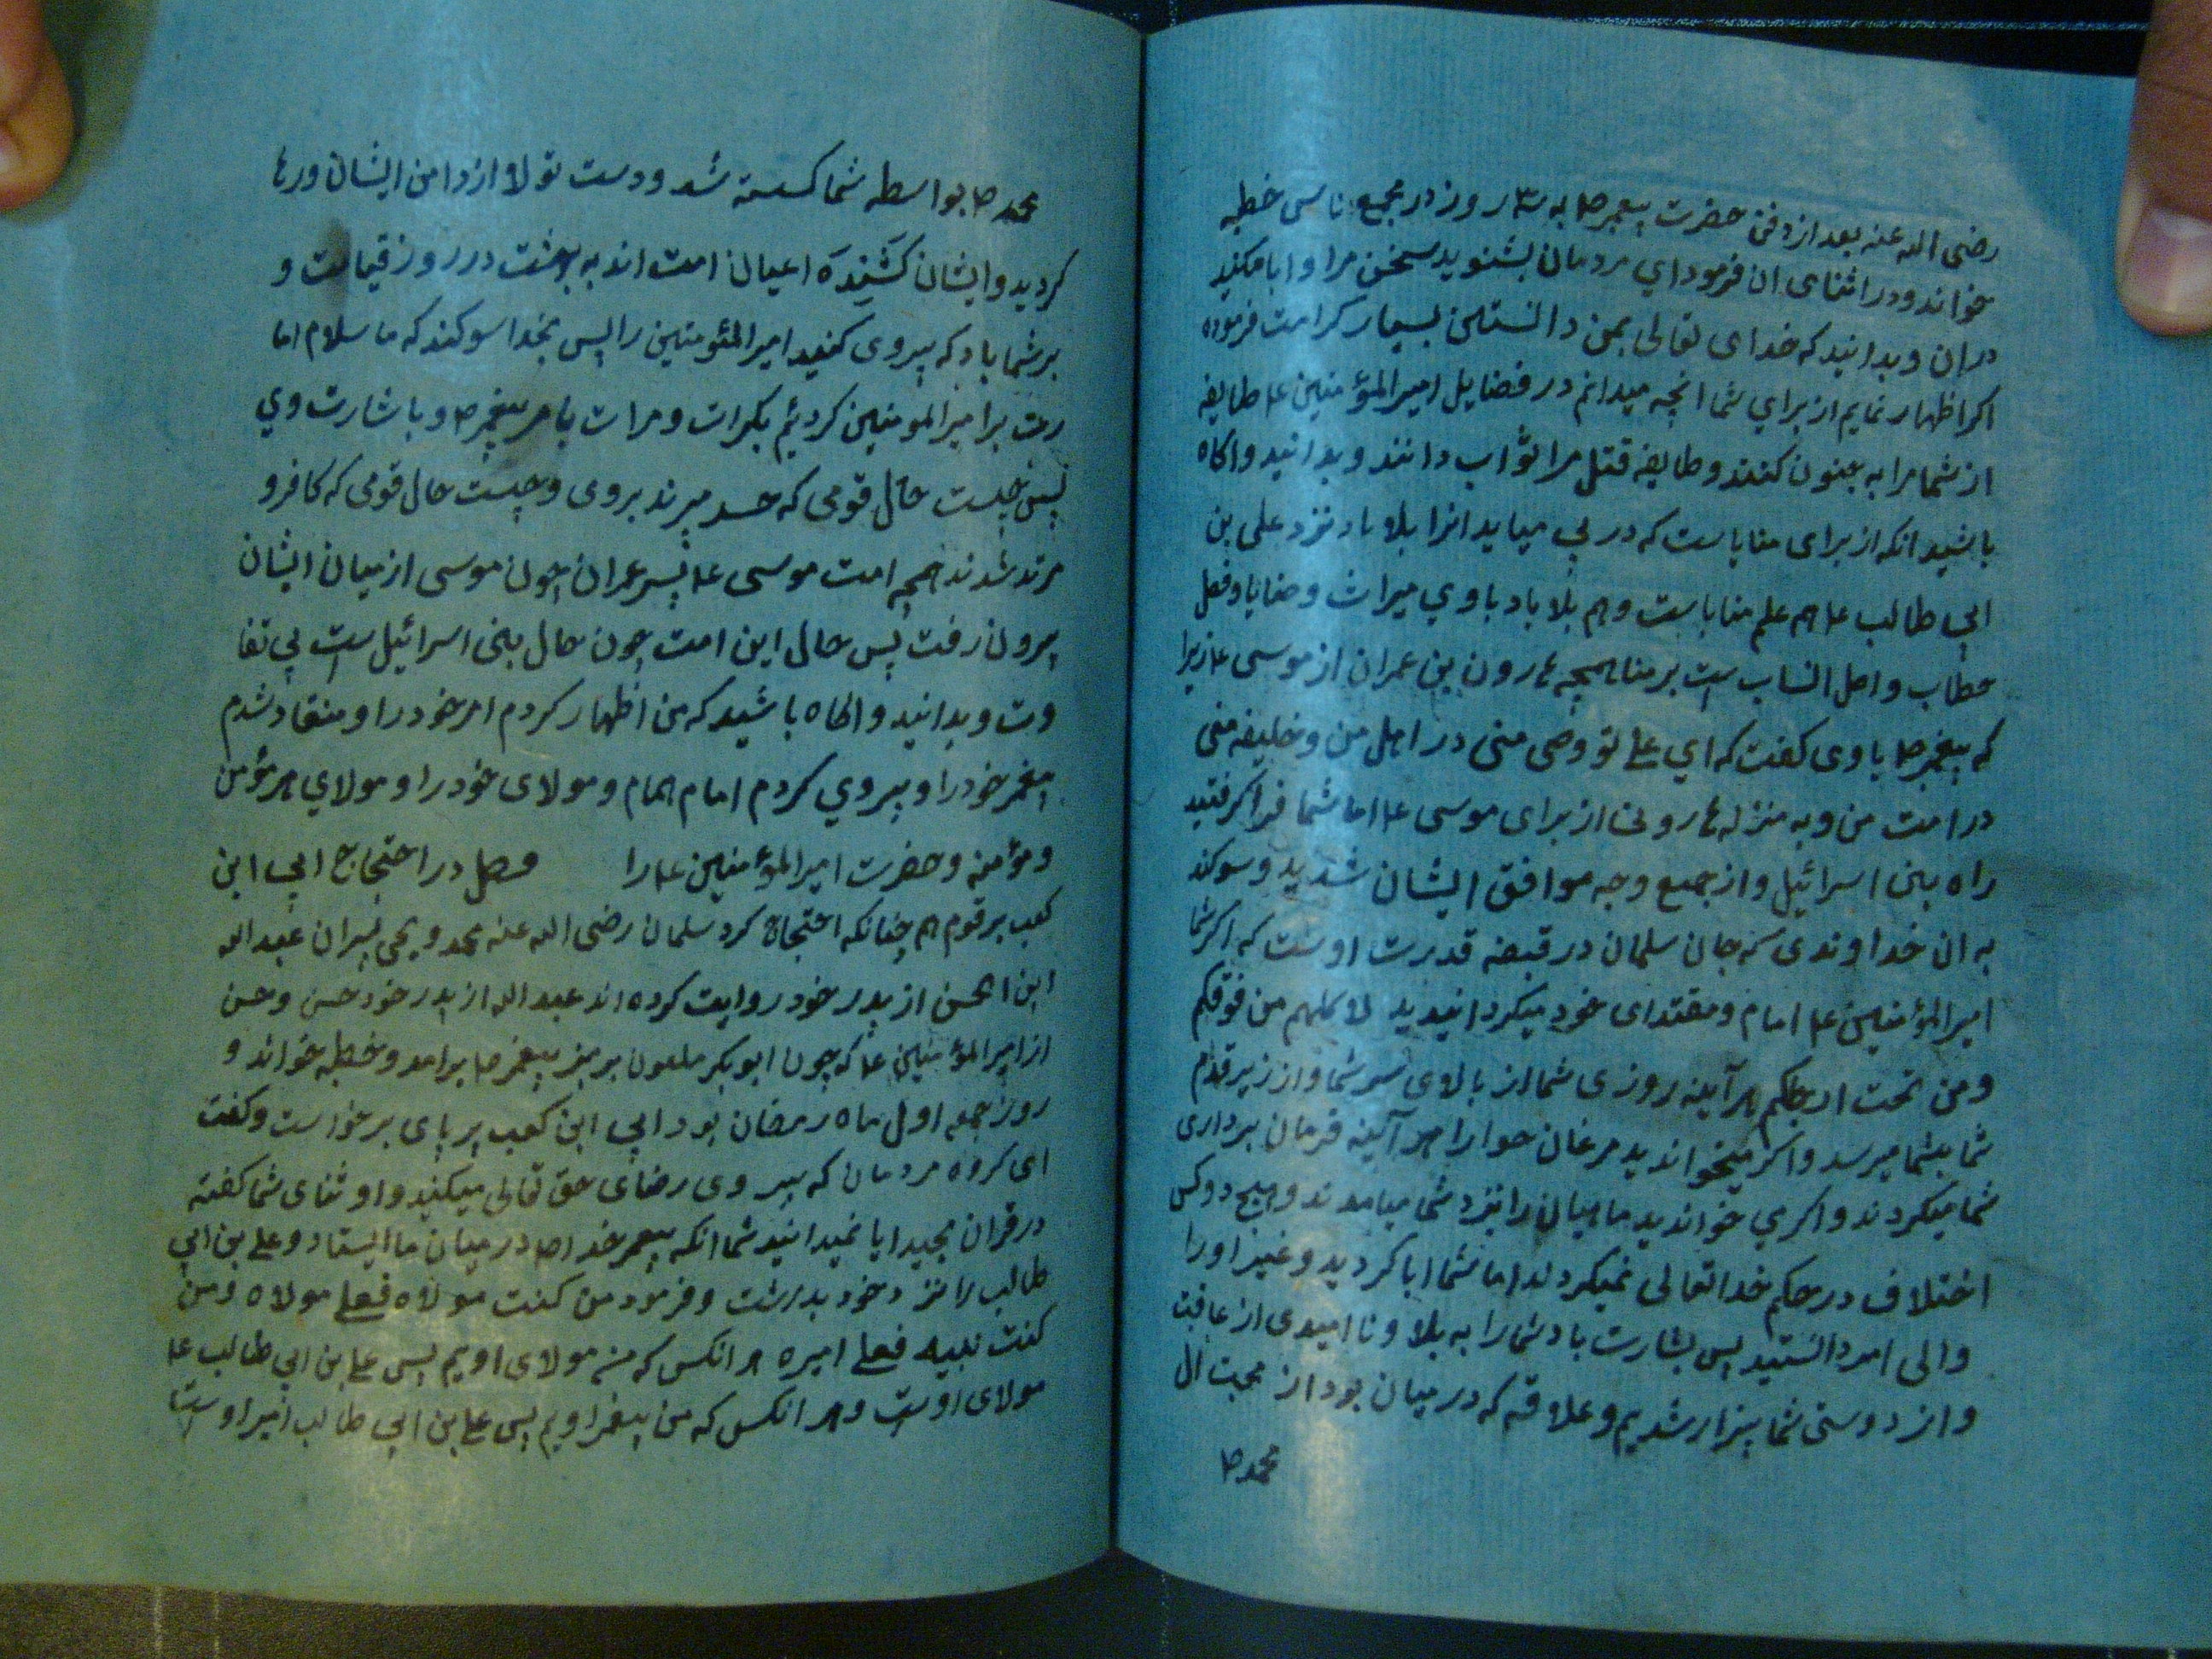 رضی الله عنه بعد از دفن حضرت پیغمبر ص به ۳ روز در مجمع ناسی خطبه
خواند و در اثنای ان فرمود ای مردمان بشنوید سخن مرا و ابا مکنید
در ان و بدانید که خدای تعالی بمن دانستن بسیار کرامت فرموده
اکر اظهار نمایم از برای شما انچه میدانم در فضایل امیرالمؤمنین عا طایفه
از شما مرا به جنون کنند و طایفه قتل مرا ثواب دانند و بدانید و اکاه
باشید انکه از برای منایاست که در پی میاید انرا بلا باد نزد علی بن
ابی طالب عا هم علم منایاست و هم بلا باد با وی میراث وصایا و فصل
خطاب و اصل انساب ست بر منا همچه هارون بن عمران از موسی عا زیرا
که پیغمبر ص با وی کفت که ای علی تو وصی منی در اهل من و خلیفه منی
در امت من و به منزله هارونی از برای موسی عا اما شما فرا کرفتید
راه بنی اسرائیل و از جمیع وجه موافق ایشان شدید و سوکند
به ان خداوندی که جان سلمان در قبضه قدرت اوست که اکر شما
امیرالمؤمنین عا امام و مقتدای خود میکردانیدید لاکلهم من فوقکم
ومن تحت ارجلکم هر آینه روزی شما از بالای سر شما و از زیر قدم
شما بشما میرسد و اکر میخواندید مرغان هوا را هر آینه فرمان برداری
شما میکردند و اکر می خواندید ماهیان را نزد شما میامدند و هیچ دو کس
اختلاف در حکم خدا تعالی نمیکردند اما شما ابا کردید و غیر او را
والی امر دانستید پس بشارت باد شما را به بلا و نا امیدی از عاقبت
و از دوستی شما بیزار شدیم و علاقه که در میان بود از محبت ال
محمد ص
محمد ص بواسطه شما کسسته شد و دست تولا از دامن ایشان ورها
کردید و ایشان کَشَندَه اعیان امت اند به بهشت در روز قیامت و
بر شما باد که پیروی کنید امیرالمئومنین را پس بخدا سوکند که ما سلام اما
رت بر امیرالمومنین کردیم بکرات و مرات بامر پیغمبر ص و باشارت وی
پس چیست حال قومی که حسد میبرند بر وی و چیست حال قومی که کافر و
مرتد شدند همچه امت موسی عا پسر عمران چون موسی از میان ایشان
بیرون رفت پس حال این امت چون حال بنی اسرائیل ست بی تفا
وت و بدانید و اکاه باشید که من اظهار کردم امر خود را و منقاد شدم
پیغمبر خود را و پیروی کردم امام همام و مولای خود را و مولای هر مؤمن
و مؤمنه و حضرت امیرالمؤمنین عا را فصل در احتجاج ابی ابن
کعب بر قوم هم چنانکه احتجاج کرد سلمان رضی الله عنه محمد و یحی پسران عبدالله
ابن الحسن از پدر خود روایت کرده اند عبدالله از پدر خود حسن و حسن
از امیرالمؤمنین عا که چون ابوبکر ملعون بر منبر پیغمبر ص برامد و خطبه خواند و
روز جمعه اول ماه رمضان بود ابی ابن کعب بر پای برخواست و کفت
ای کروه مردمان که پیروی رضای حق تعالی میکنید و او ثنای شما کفته
در قران مجید ایا نمیدانید شما انکه پیغمبر خدا ص در میان ما ایستاد و علی بن ابی
طالب را نزد خود بداشت و فرمود من کنت مولاه فعلی مولاه ومن
کنت نبیه فعلی امیره هر انکس که من مولای اویم پس علی بن ابی طالب عا
مولای اوست و هر انکس که من پیغمبر اویم پس علی بن ابی طالب امیر اوست